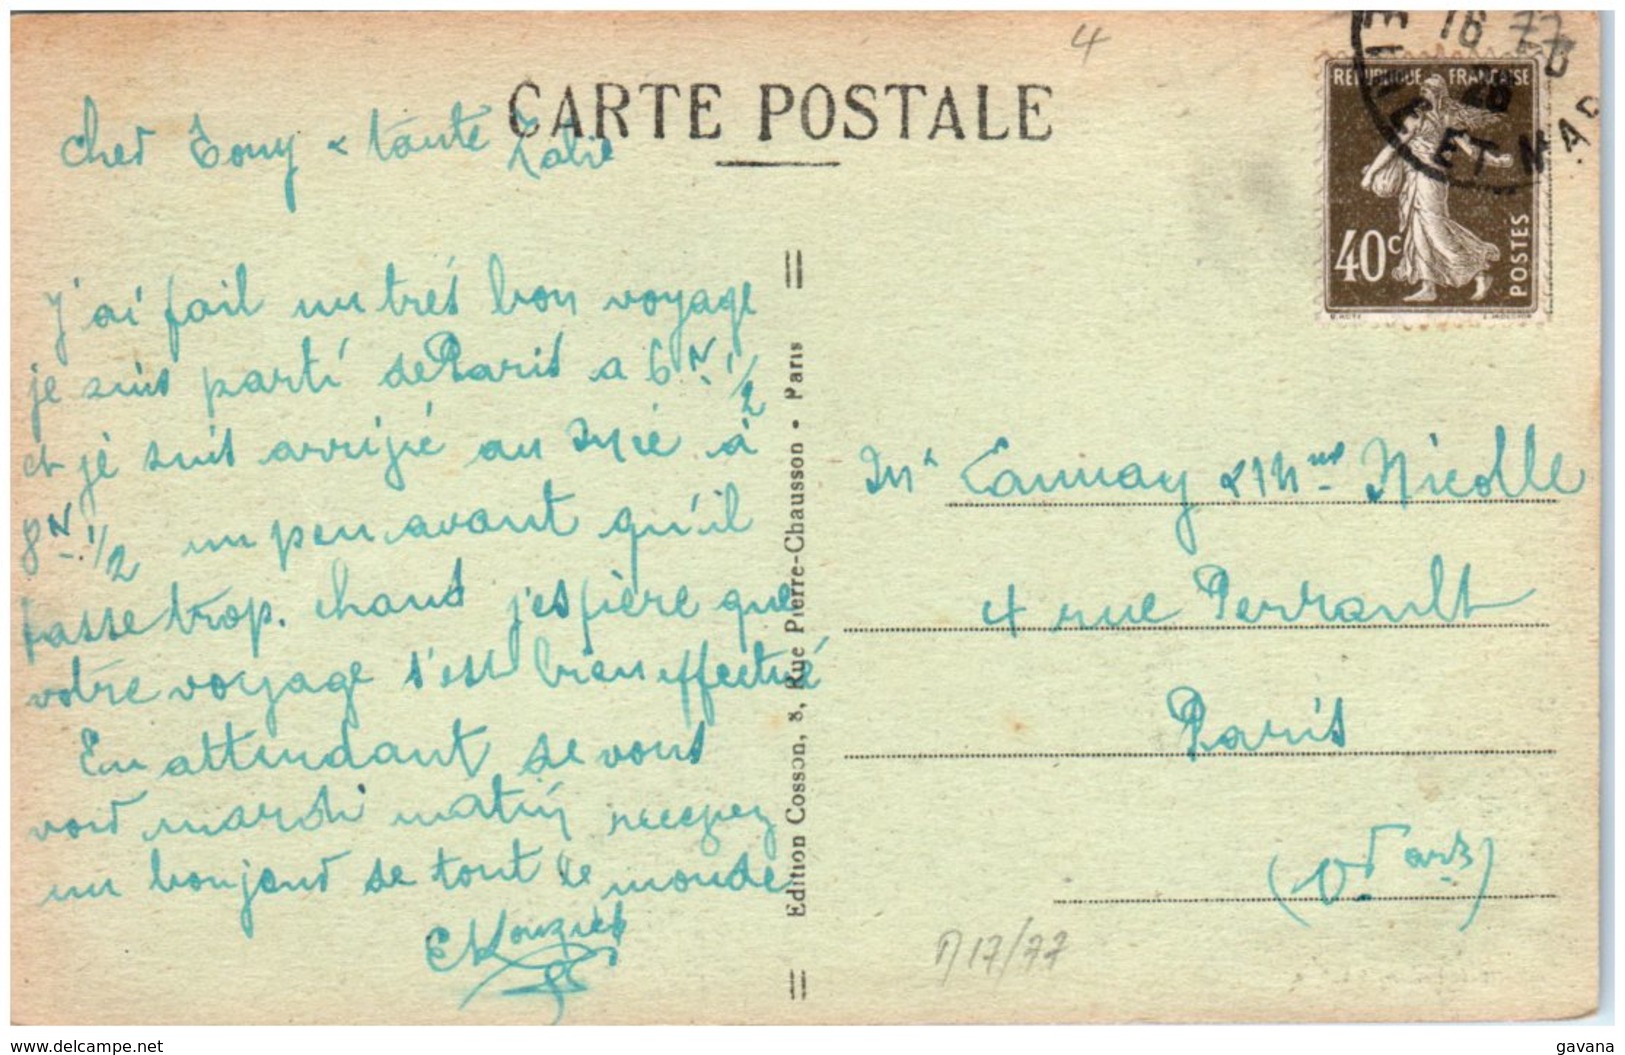 4
CARTE POSTALE
cher Tony & tante
Zalie
J'ai fait un très bon voyage
je suis parti de Paris a 6 H. 1/2
et je suis arrivé au Inré à
8 H. 1/2 un peu avant qu'il
fasse trop. chaud j'espère que
votre voyage s'est bien effectué
En attendant de vous
voir mardi matin recevez
un bonjour de tout le monde
Edition Cosson, 8, Rue Pierre-Chausson • Paris
REPUBLIQUE FRANÇAISE
40c
POSTES
16
77
26
ET MAR
Mr Launay & Mme Nicolle
4 rue Perrault
Paris
17/77
www.delcampe.net
gavana